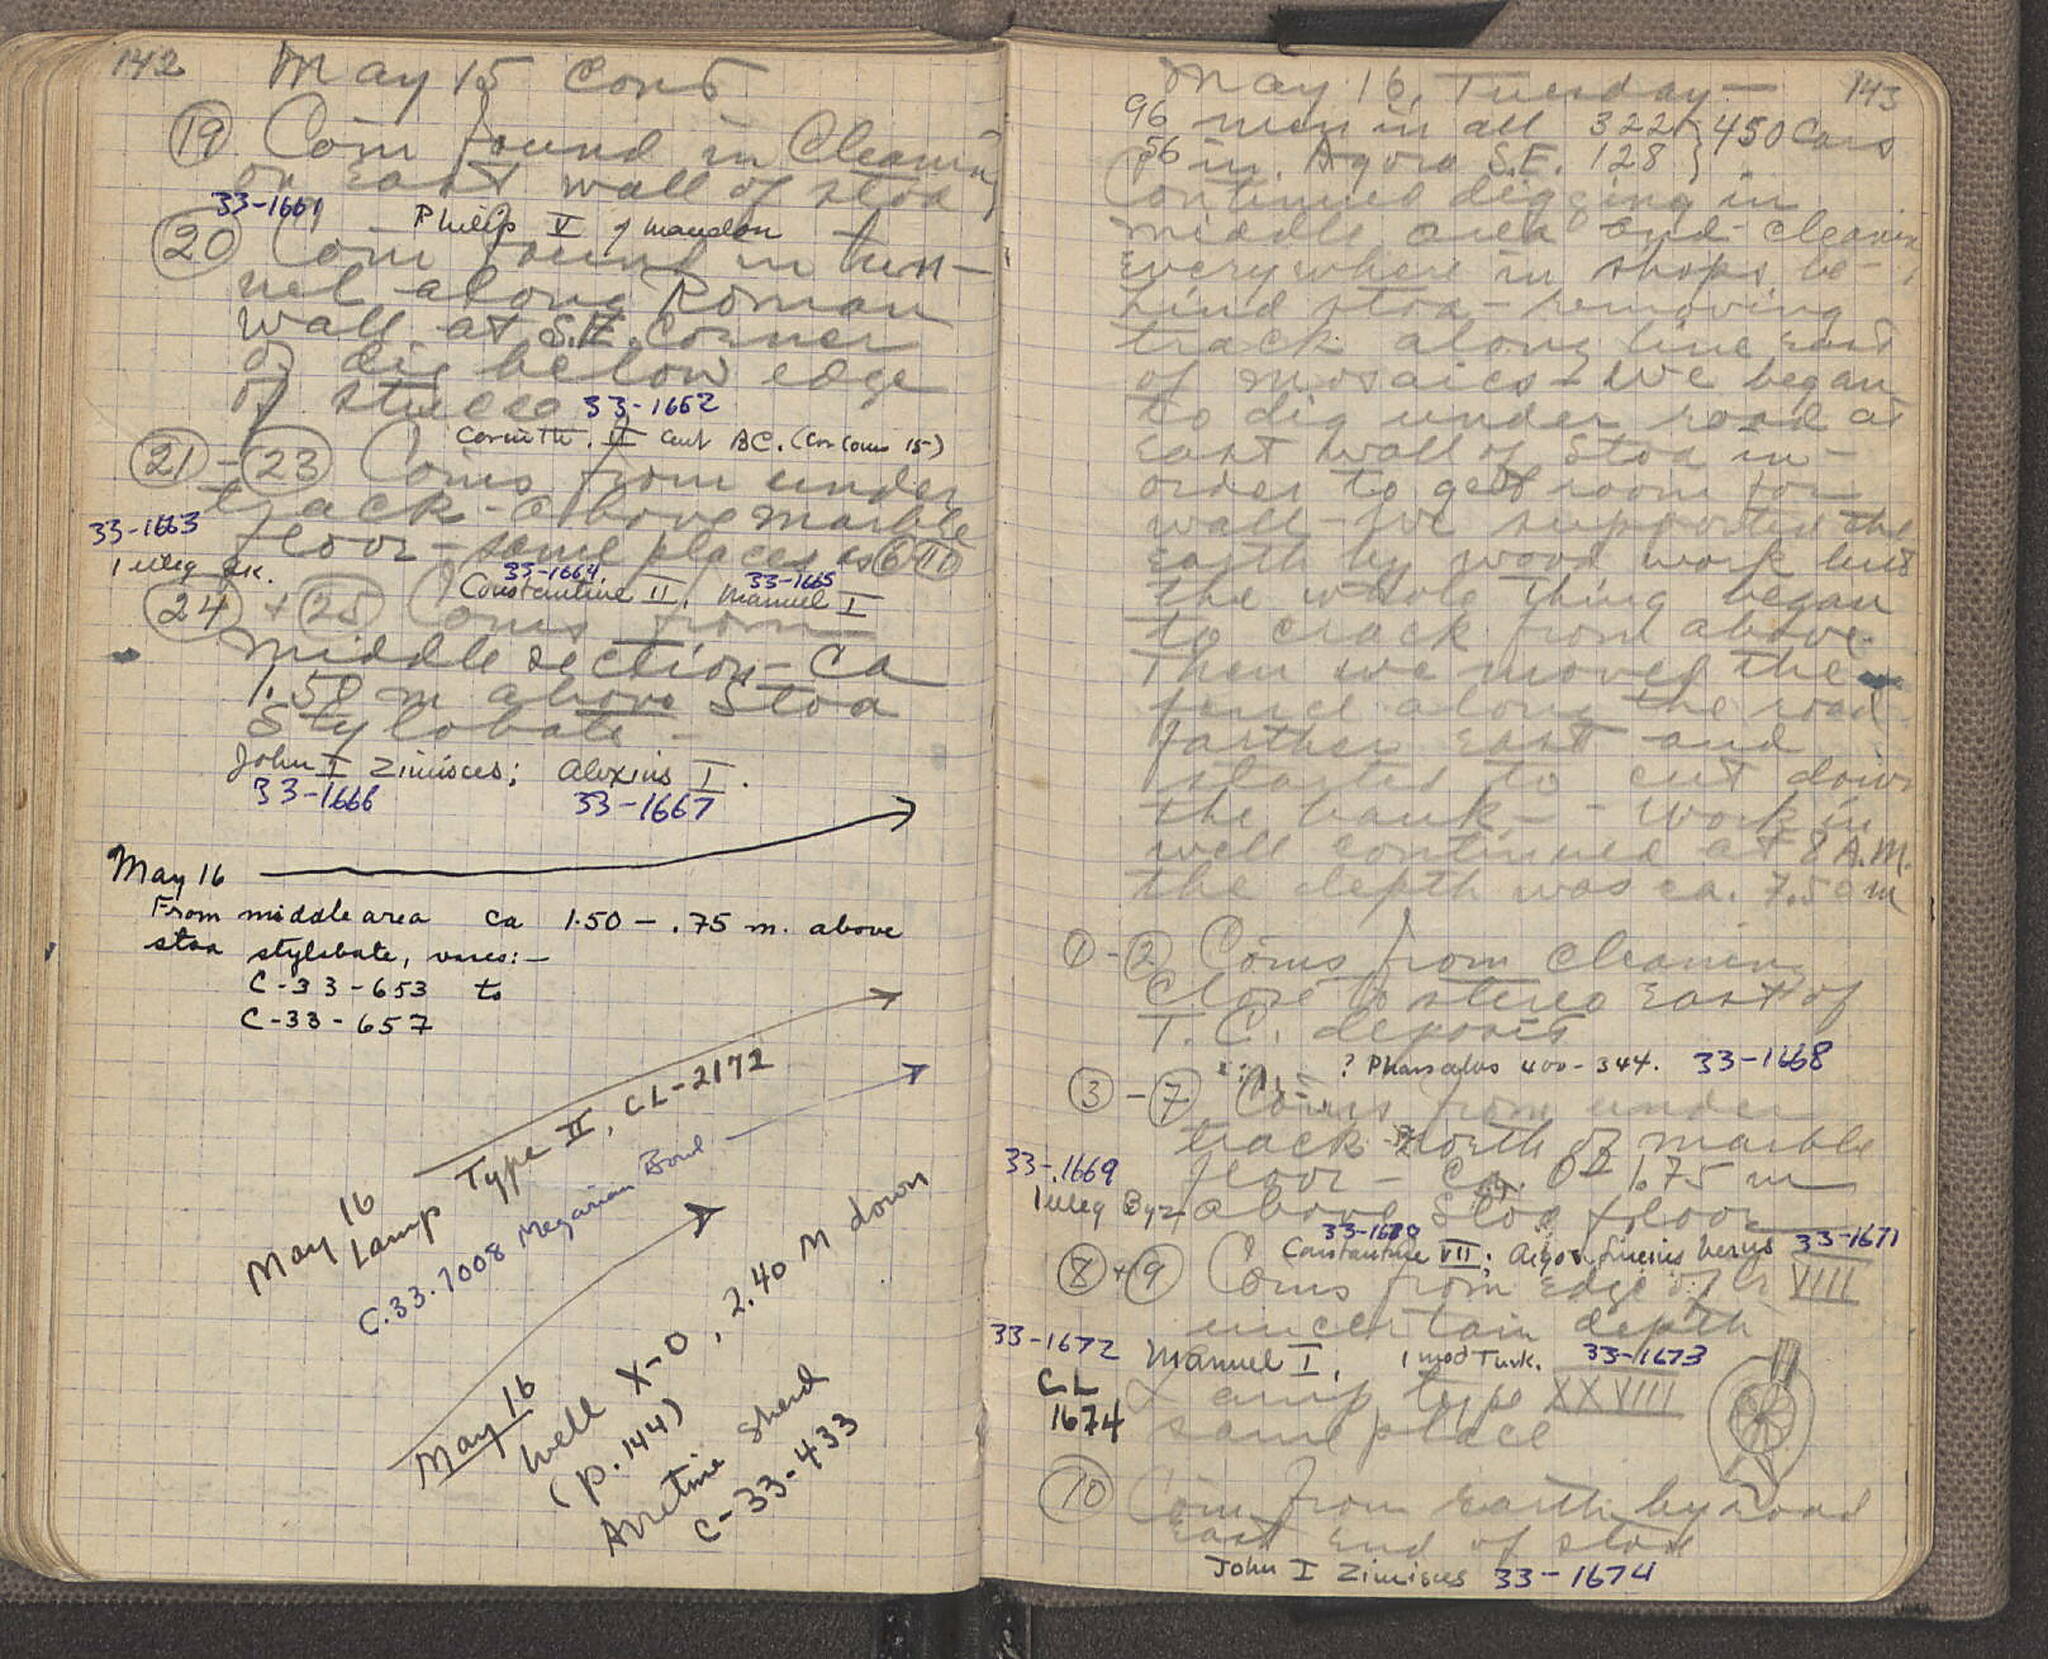 142
May 15 Cont
(19) Coin found in Cleaning
on East wall of stoa
33-1661
Philip V of Macedon
(20) Coin found in tun-
nel along Roman
wall at S.E. Corner
of dig below edge
of stucco 33-1662
Corinth. II Cent BC. (Cor Coins 15)
(21)-(23) Coins from under
track - above marble
floor - same place as (6-11)
33-1663
1 illeg Gk.
33-1664 33-1665
Constantine II, Manuel I
(24) + (25) Coins from
middle section - Ca
1.50 m above Stoa
Stylobate -
John I Zimisces; Alexius I.
33-1666 33-1667
May 16
From middle area ca 1.50 - .75 m. above
stoa stylobate, vases:-
C-33-653 to
C-33-657
May 16
Lamp Type II, CL-2172
C.33.1008 Megarian Bowl
May 16
Well X-O, 2.40 m down
(p. 144)
Arretine Sherd
C-33-433
May 16, Tuesday - 143
96 men in all 322 } 450 Cars
56 in Agora S.E. 128 }
Continued digging in
middle area and cleaning
everywhere in shops be-
hind stoa - removing
track along line East
of mosaics - We began
to dig under road at
East wall of Stoa in-
order to get room for
wall - We supported the
earth by wood work but
the whole thing began
to crack from above.
Then we moved the
fence along the road
farther East and
started to cut down
the bank - - Work in
well continued at 8 A.M.
the depth was ca. 7.50 m
(1)-(2) Coins from cleaning
close to stereo East of
T.C. deposit
? Pharsalus 400-344. 33-1668
(3)-(7) Coins from under
track north of marble
floor - Ca. 0.75 m
above Stoa floor
33-1669
1 illeg Byz
33-1670
Constantine VII; Argos, Lucius Verus 33-1671
(8)+(9) Coins from Edge of VIII
uncertain depth
33-1672 Manuel I, 1 mod Turk. 33-1673
CL
1674
Lamp type XXVIII
same place
(10) Coin from earth by road
East End of stoa
John I Zimisces 33-1674